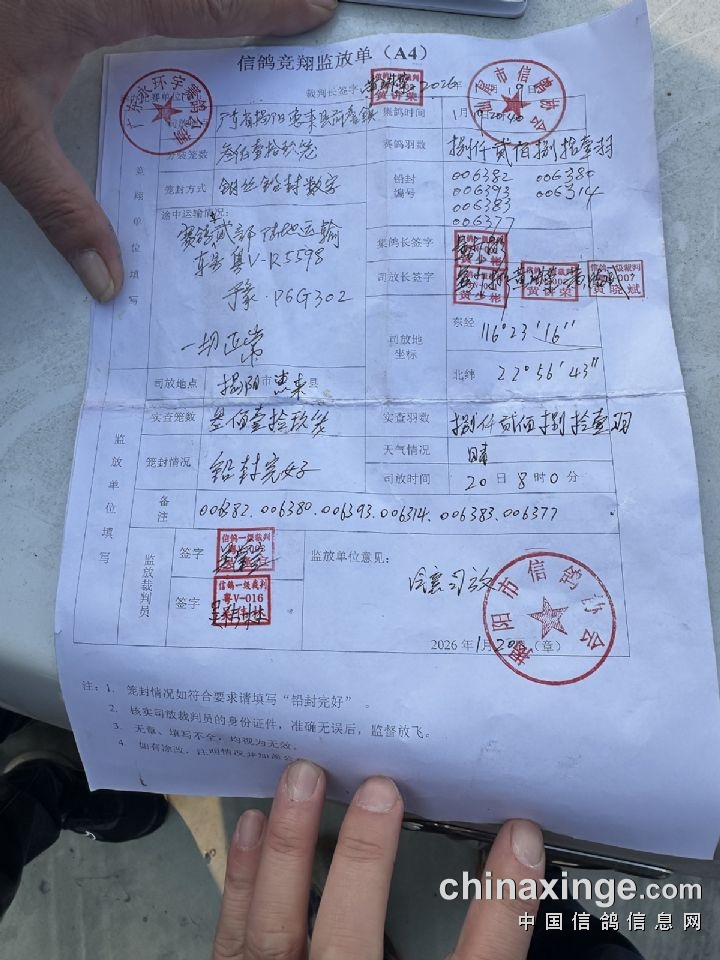 信鸽竞翔监放单（A4）
裁判长签字 2026年 月19日
集鸽时间 1月
竞翔单位填写
分装笼数 叁佰壹拾玖笼
赛鸽羽数 捌仟贰佰捌拾壹羽
笼封方式 钢丝铅封数字
铅封编号 006382 006380
006393 006314
006383
006377
途中运输情况：
赛鸽贰部陆地运输
车号粤V-R5598
予豪·P6G302
一切正常
集鸽长签字
司放长签字
司放地坐标 东经 116°23′16″
北纬 22°56′43″
司放地点 揭阳市惠来县
监放单位填写
实查笼数 叁佰壹拾玖笼
实查羽数 捌仟贰佰捌拾壹羽
笼封情况 铅封完好
天气情况 晴
司放时间 20日8时0分
备注 006382.006380.006393.006314.006383.006377
监放裁判员
签字
信鸽一级裁判
签字
信鸽一级裁判
粤V-016
监放单位意见：
同意司放
揭阳市信鸽协会
2026年1月20日（章）
注：1. 笼封情况如符合要求请填写“铅封完好”。
2. 核实司放裁判员的身份证件，准确无误后，监督放飞。
3. 无章、填写不全，均视为无效。
4 如有涂改，注明情况并加盖公
chinaxinge.com
中国信鸽信息网